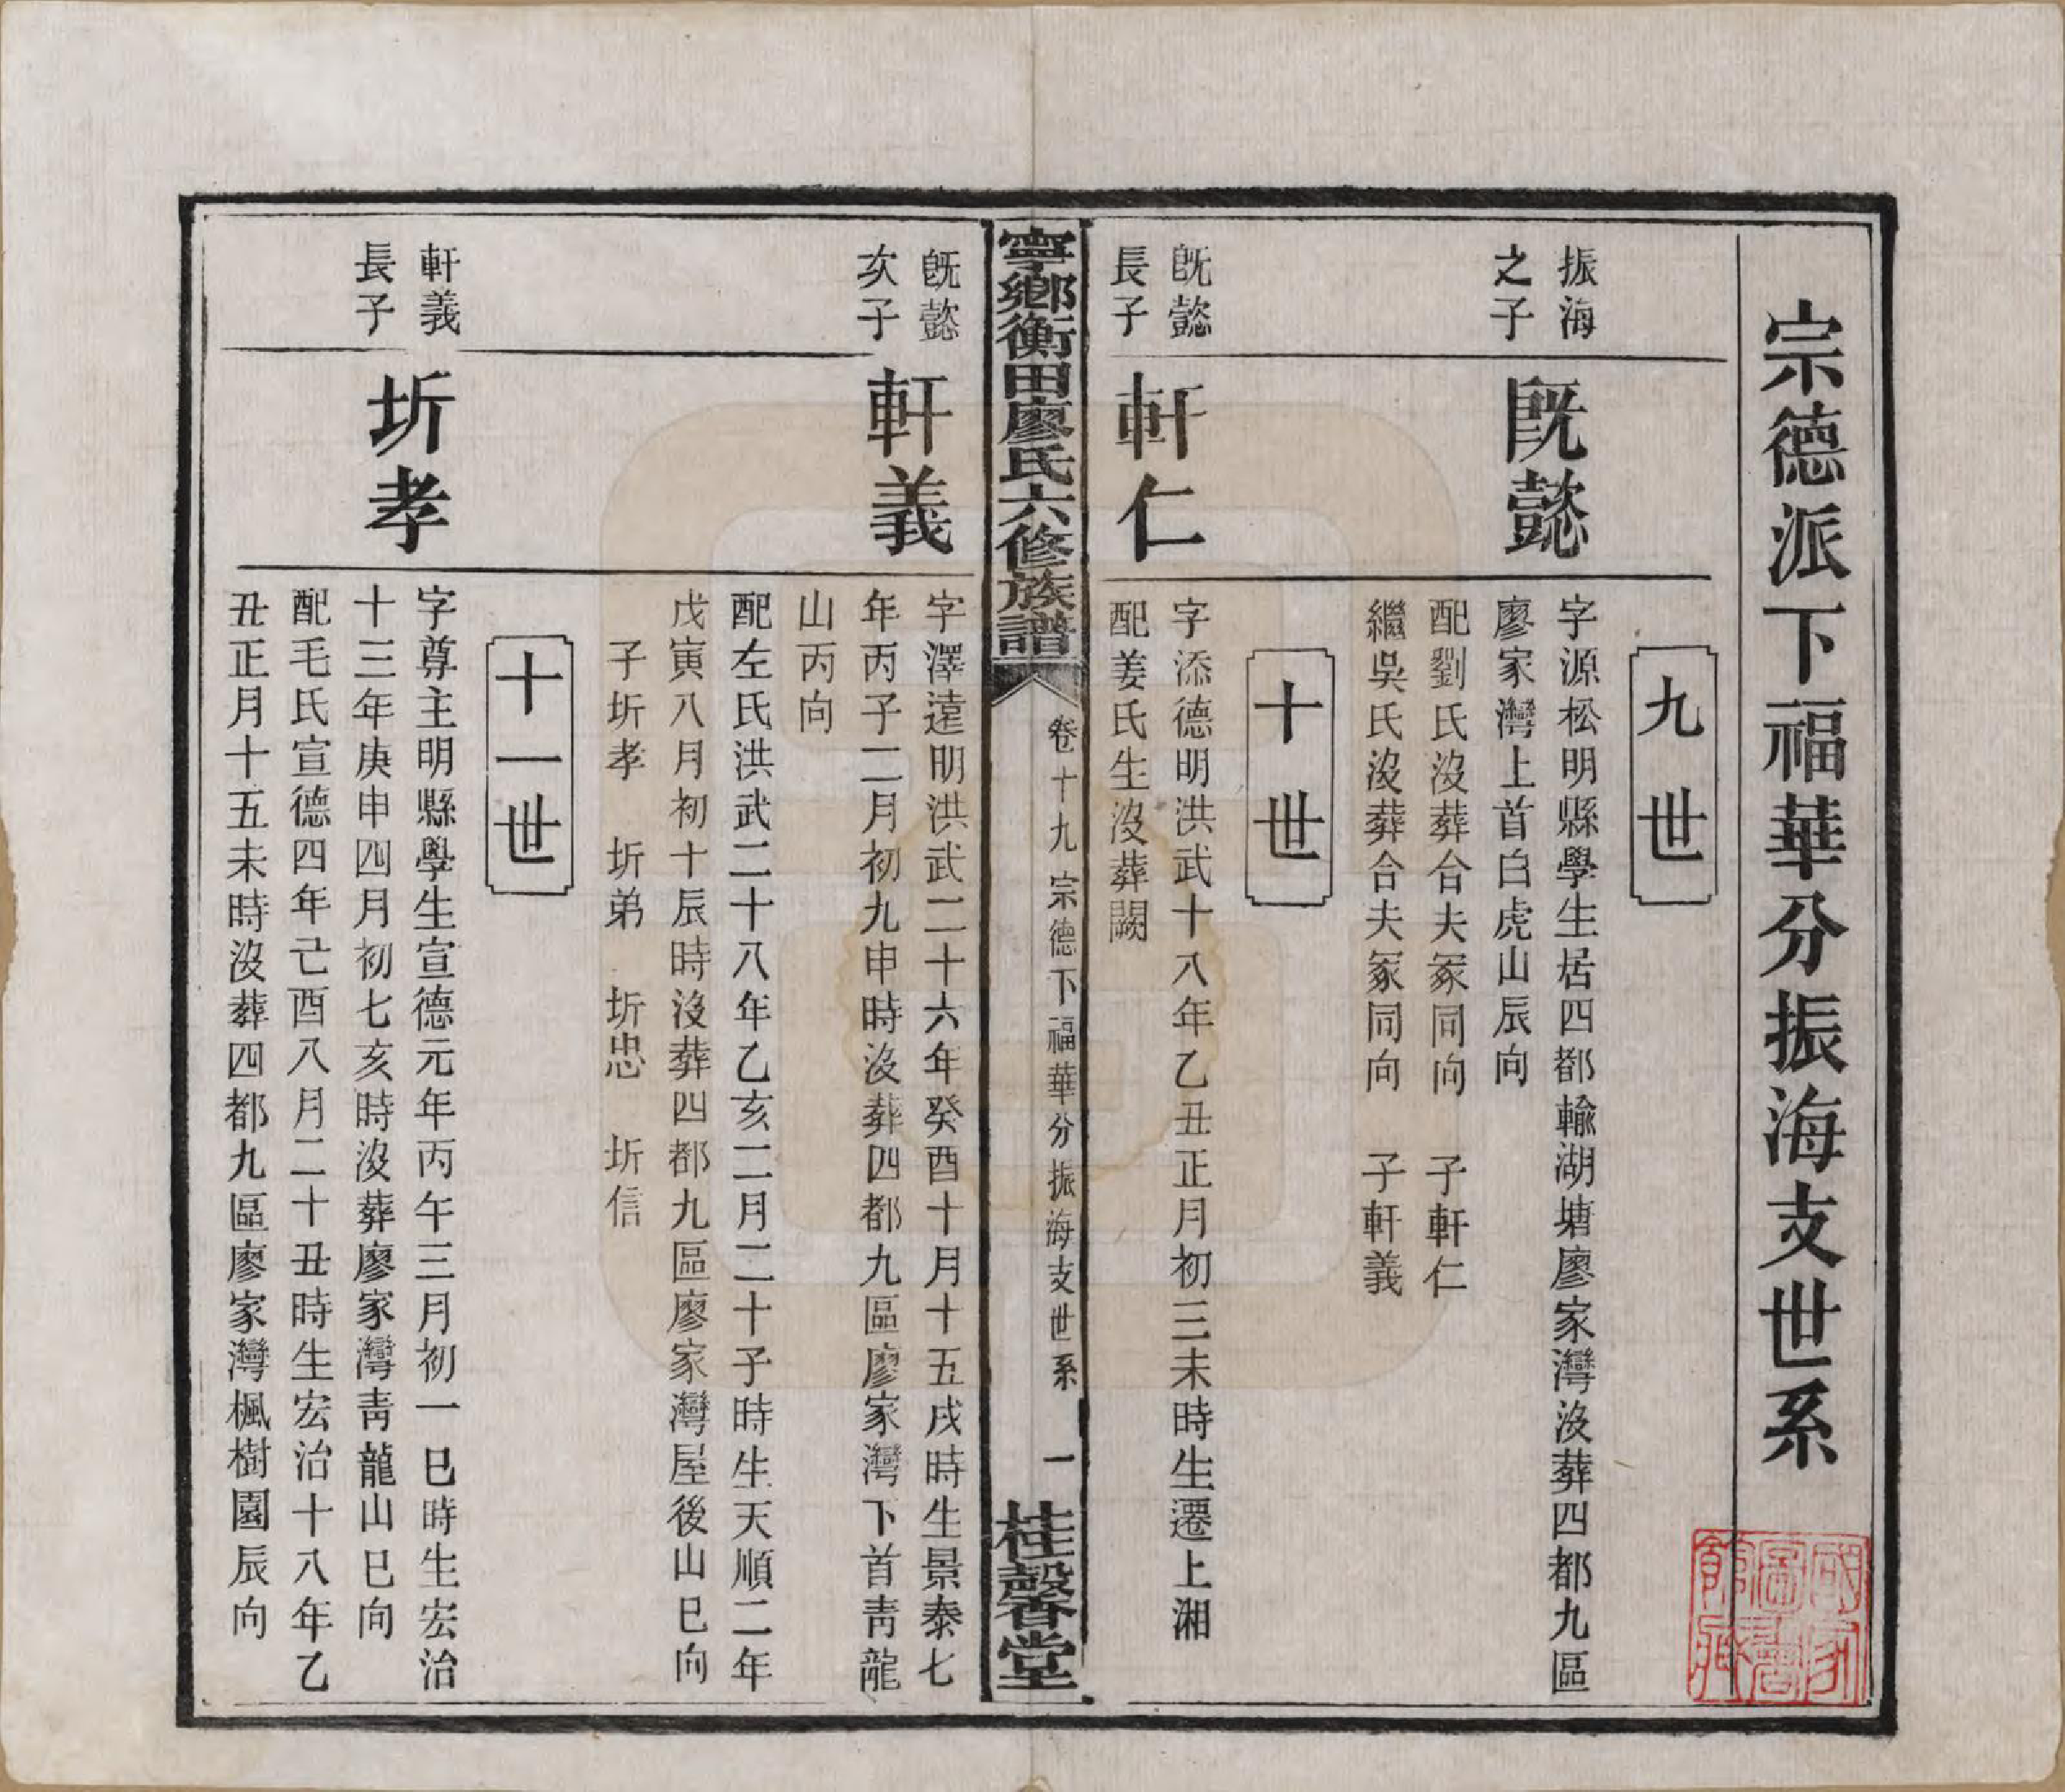 宗德派下福華分振海支世系
九世
振海
之子
旣懿
字源松明縣學生居四都輸湖塘廖家灣沒葬四都九區
廖家灣上首白虎山辰向
配劉氏沒葬合夫冢同向　子軒仁
繼吳氏沒葬合夫冢同向　子軒義
十世
旣懿
長子
軒仁
字添德明洪武十八年乙丑正月初三未時生遷上湘
配姜氏生沒葬闕
寧鄉衡田廖氏六修族譜
卷十九　宗德下福華分振海支世系
一
桂馨堂
旣懿
次子
軒義
字澤遠明洪武二十六年癸酉十月十五戌時生景泰七
年丙子二月初九申時沒葬四都九區廖家灣下首靑龍
山丙向
配左氏洪武二十八年乙亥二月二十子時生天順二年
戊寅八月初十辰時沒葬四都九區廖家灣屋後山巳向
子圻孝　圻弟　圻忠　圻信
十一世
軒義
長子
圻孝
字尊主明縣學生宣德元年丙午三月初一巳時生宏治
十三年庚申四月初七亥時沒葬廖家灣靑龍山巳向
配毛氏宣德四年己酉八月二十丑時生宏治十八年乙
丑正月十五未時沒葬四都九區廖家灣楓樹園辰向
國家
圖書
館藏